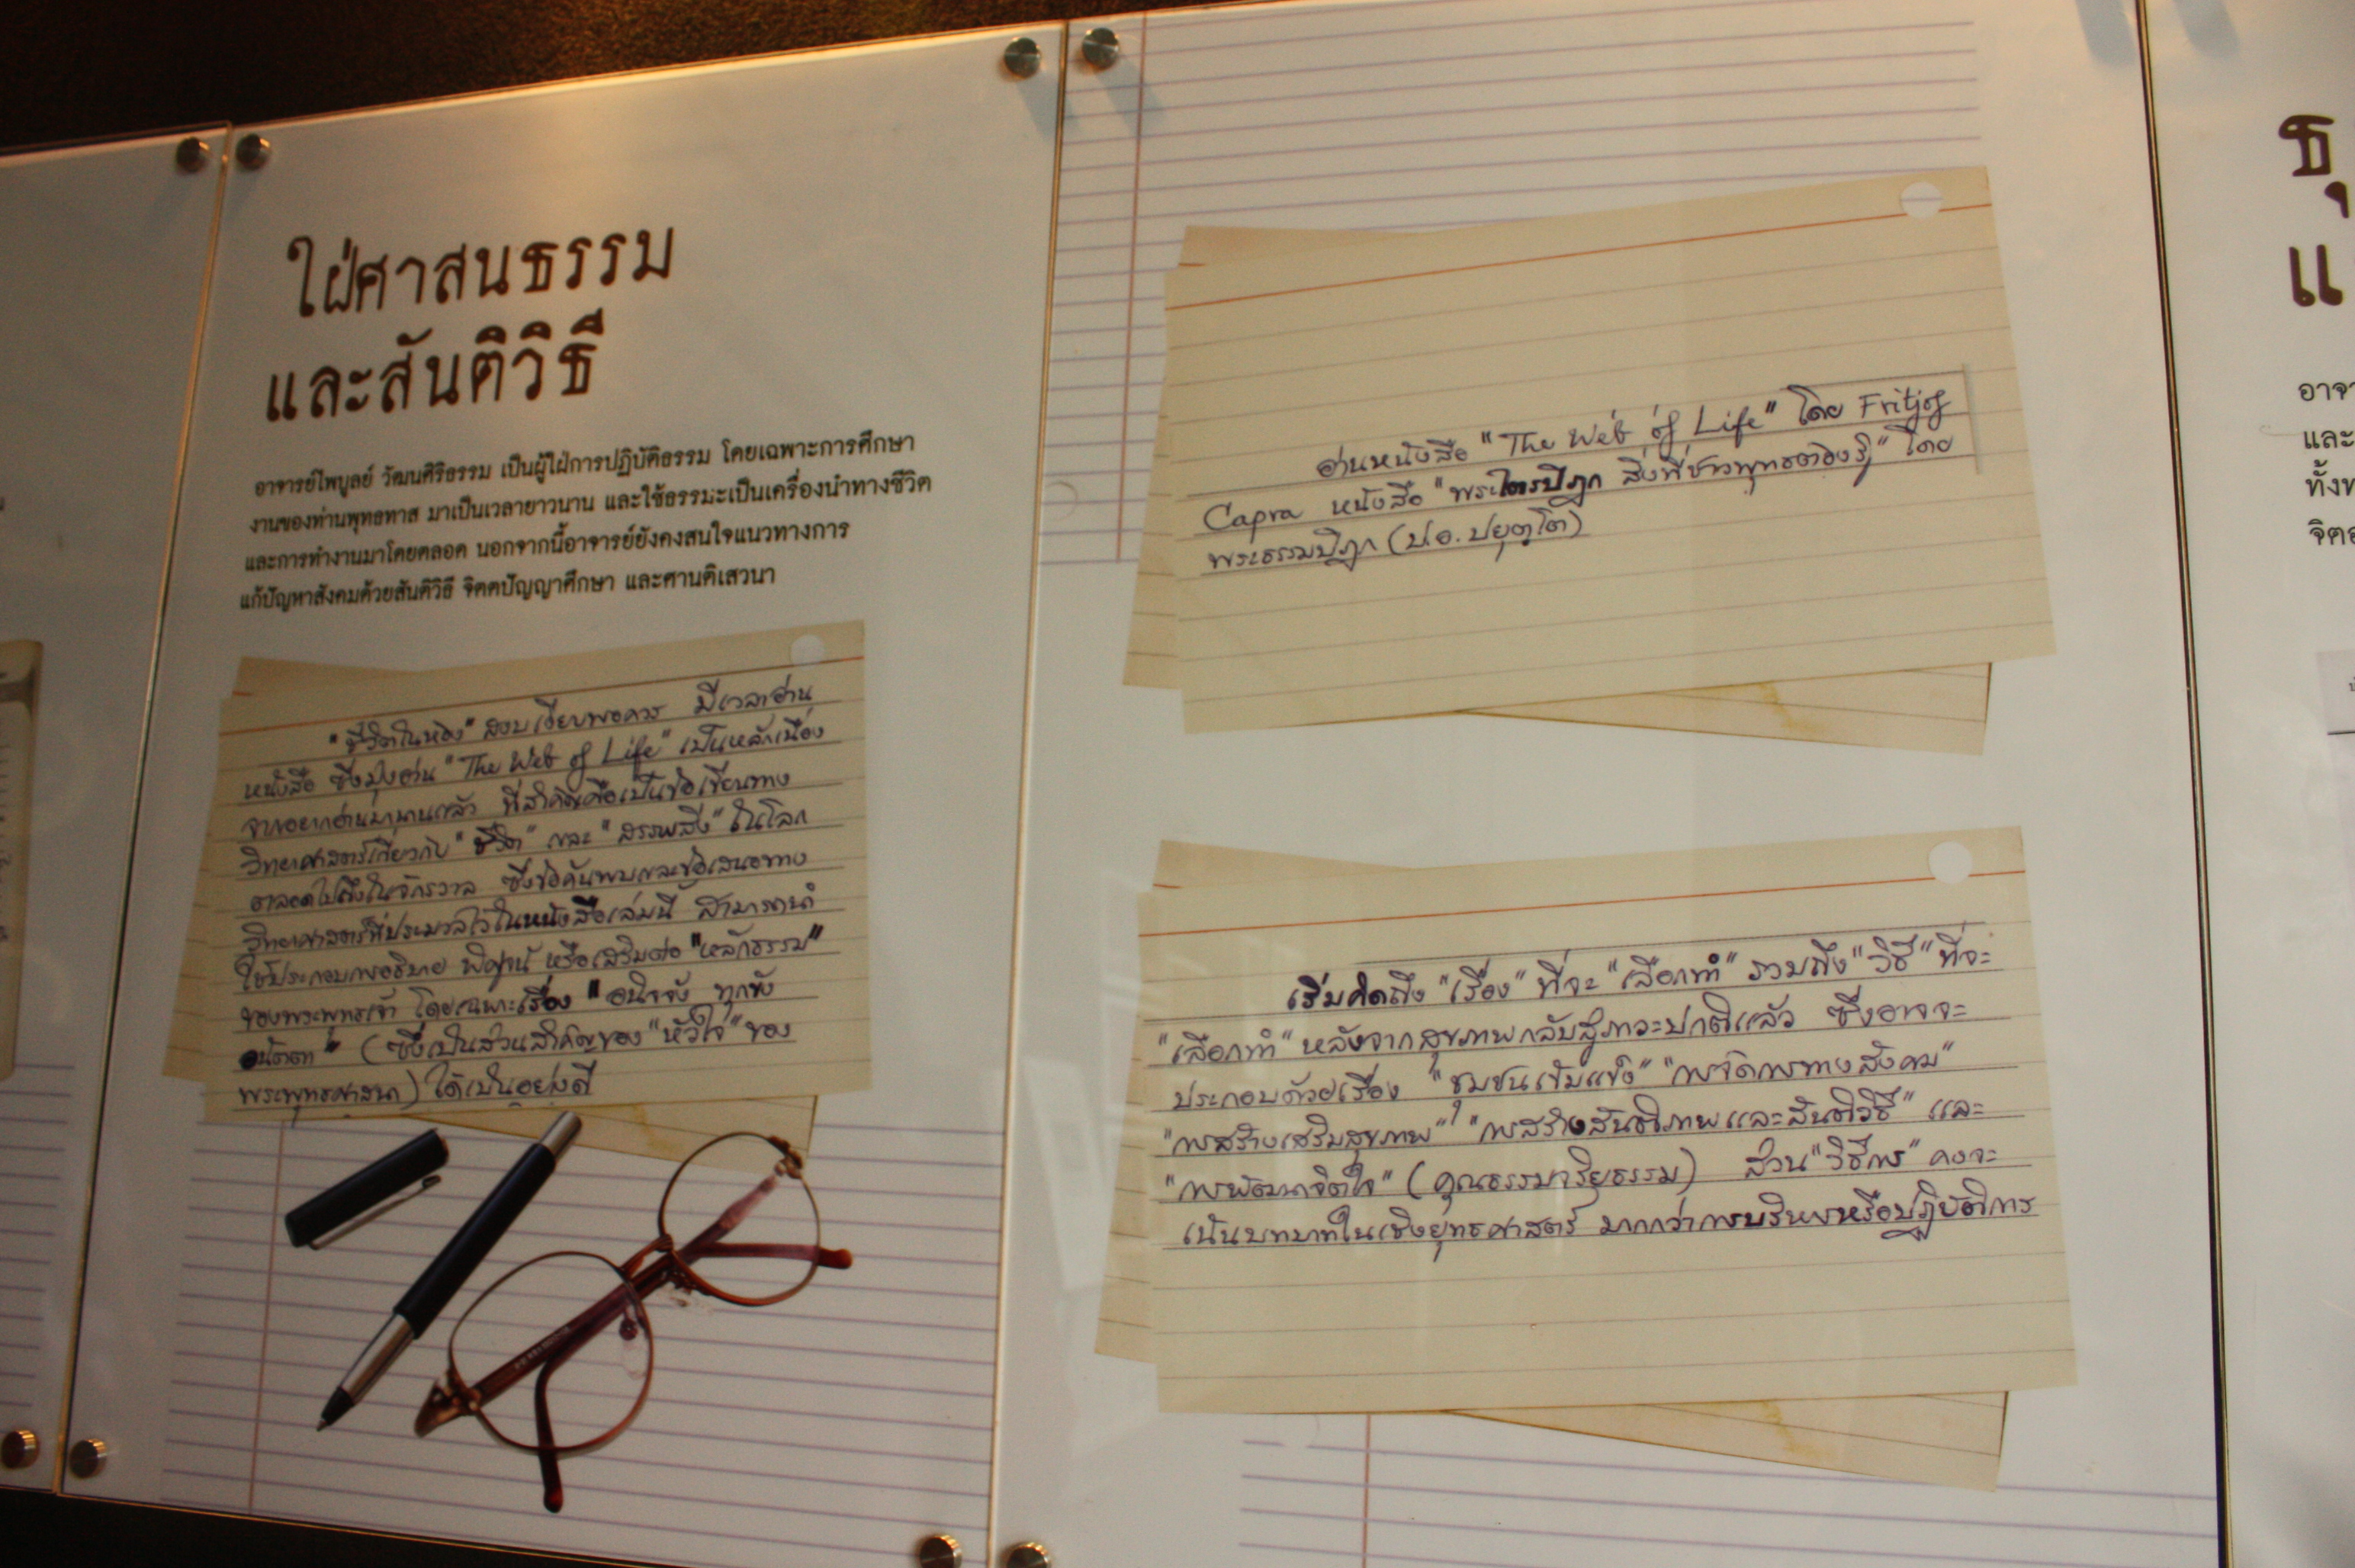 ใฝ่ศาสนธรรม
และสันติวิธี
อาจารย์ไพบูลย์ วัฒนศิริธรรม เป็นผู้ใฝ่การปฏิบัติธรรม โดยเฉพาะการศึกษา
งานของท่านพุทธทาส มาเป็นเวลายาวนาน และใช้ธรรมะเป็นเครื่องนำทางชีวิต
และการทำงานมาโดยตลอด นอกจากนี้อาจารย์ยังคงสนใจแนวทางการ
แก้ปัญหาสังคมด้วยสันติวิธี จิตตปัญญาศึกษา และศานติเสวนา
"ชีวิตในห้อง" สงบเงียบพอควร มีเวลาอ่าน
หนังสือ ซึ่งมุ่งอ่าน "The Web of Life" เป็นหลักเนื่อง
จากอยากอ่านมานานแล้ว ที่สำคัญคือเป็นข้อเขียนทาง
วิทยาศาสตร์เกี่ยวกับ "ชีวิต" และ "สรรพสิ่ง" ในโลก
ตลอดไปถึงในจักรวาล ซึ่งข้อค้นพบและข้อเสนอทาง
วิทยาศาสตร์ที่ประมวลไว้ในหนังสือเล่มนี้ สามารถนำ
ใช้ประกอบการอธิบาย พิศูจน์ หรือเสริมต่อ "หลักธรรม"
ของพระพุทธเจ้า โดยเฉพาะเรื่อง "อนิจจัง ทุกขัง
อนัตตา" (ซึ่งเป็นส่วนสำคัญของ "หัวใจ" ของ
พระพุทธศาสนา) ได้เป็นอย่างดี
อ่านหนังสือ "The Web of Life" โดย Fritjof
Capra หนังสือ "พระไตรปิฎก สิ่งที่ชาวพุทธต้องรู้" โดย
พระธรรมปิฎก (ป.อ. ปยุตฺโต)
เริ่มคิดถึง "เรื่อง" ที่จะ "เลือกทำ" รวมถึง "วิธี" ที่จะ
"เลือกทำ" หลังจากสุขภาพกลับสู่ภาวะปกติแล้ว ซึ่งอาจจะ
ประกอบด้วยเรื่อง "ชุมชนเข้มแข็ง" "การจัดการทางสังคม"
"การสร้างเสริมสุขภาพ" "การสร้างสันติภาพและสันติวิธี" และ
"การพัฒนาจิตใจ" (คุณธรรมจริยธรรม) ส่วน "วิธีการ" คงจะ
เน้นบทบาทในเชิงยุทธศาสตร์ มากกว่าการบริหารหรือปฏิบัติการ
ธุ
แ
อาจา
และ
ทั้งท